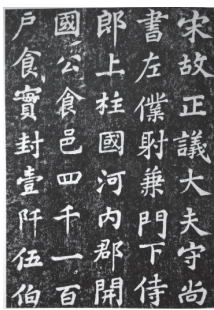 宋故正議大夫守尚
書左僕射兼門下侍
郎上柱國河內郡開
國公食邑四千一百
戶食實封壹阡伍伯